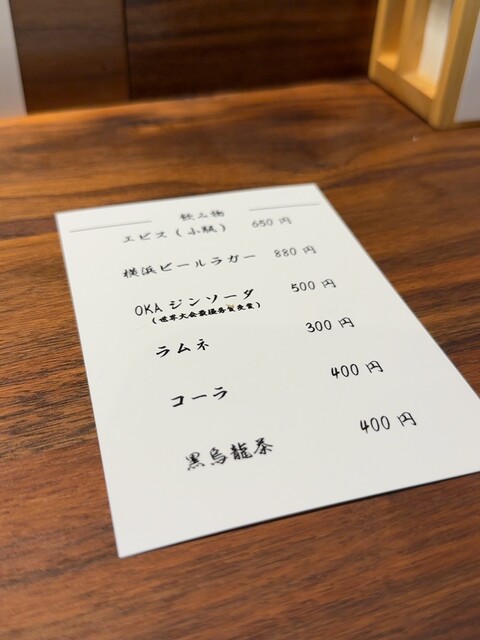 飲み物
エビス(小瓶) 650円
横浜ビールラガー 880円
OKAジンソーダ 500円
(世界大会最優秀賞受賞)
ラムネ 300円
コーラ 400円
黒烏龍茶 400円